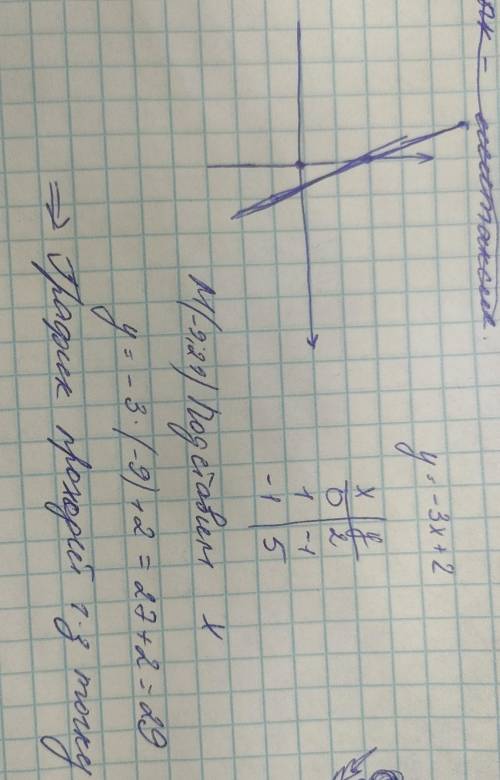 y = -3x + 2
x | y
0 | 2
1 | -1
-1 | 5
M(-9; 29) Подставим x
y = -3·(-9) + 2 = 27 + 2 = 29
⇒ График проходит ч-з точку